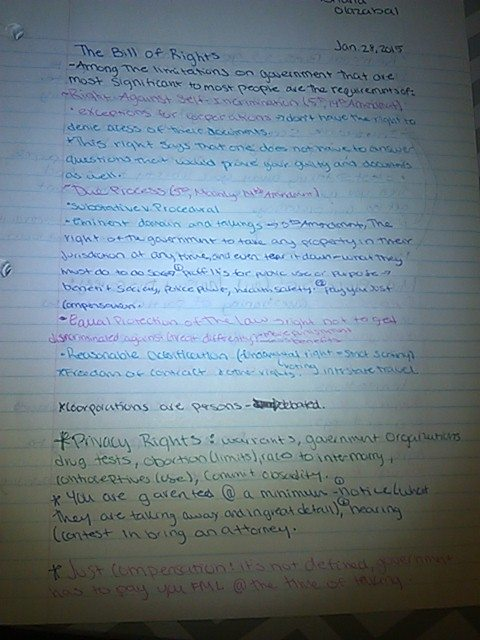 Olazabal
Jan. 28, 2015
The Bill of Rights
-Among the limitations on government that are
most significant to most people are the requirements of:
-Right Against Self-Incrimination (5th, 14th Amendment)
* exceptions for corporations → don't have the right to
denie acess of their documents.
*This right says that one does not have to answer
questions that would prove your guilty and documents
as well.
*Due Process (5th, 14th Amendment)
*Substantive v. Procedural
-Eminent domain and takings → 5th Amendment, The
right of the government to take any property in their
jurisdiction at any time, and even tear it down - what they
must do to do so ① if it's for public use or purpose →
benefit society, police, health safety. ② Pay you Just
Compensation.
- Equal Protection of the law → right not to get
discriminated against (treat differently)
-Reasonable Classification (fundamental right → strict scrutiny)
*Freedom of contract other rights. voting interstate travel.
*Coorporations are persons - debated.
*Privacy Rights: warrants, government organizations
drug tests, abortion (limits), race to intermarry,
contraceptives (use), commit obsodity.
* You are garenteed @ a minimum - ① notice (what
they are taking away and in great detail), ② hearing
(contest in bring an attorney.
* Just Compensation: it's not defined, government
has to pay you FML @ the time of taking.